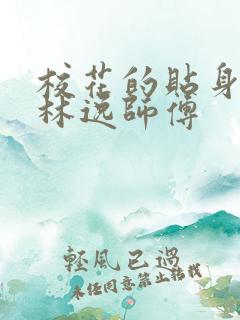 校花的貼身
林逸師傅
輕風已過
未经同意禁止转载